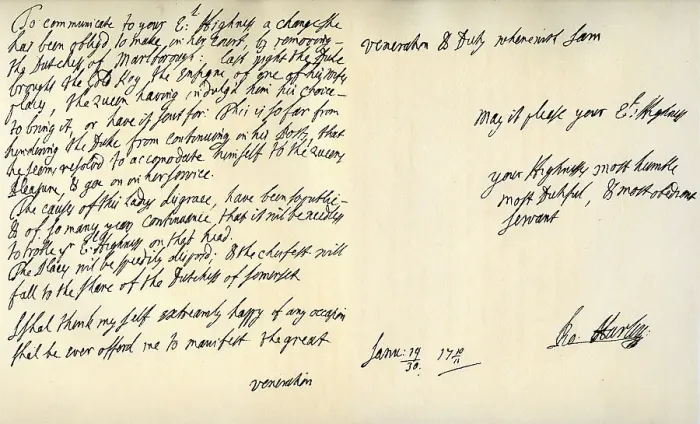 To communicate to your E:ll Highness a change she
has been oblig'd to make, in her Court, by removing
the Dutchess of Marlborough: Last night the Duke
brought the Gold Key the Ensigne of one of his wifes
places, the Queen having indulg'd him his choice
to bring it, or have it sent for: This is so far from
hendering the Duke from continuing in his Post, that
he seems resolv'd to accomodate himself to the Queens
Pleasure, & goe on in her service.
The causes of this Lady disgrace, have been so public
& of so many years continuance, that it wil be needless
to troble yr El Highness on that head.
The Places wil be speedily dispos'd; & the cheifest will
fall to the share of the Dutchess of Somerset
I shal think my self extreamly happy of any occasion
shal be ever afford me to manifest the great
veneration
veneration & Duty wherewith I am
May it please your E:ll Highness
your Highness most humble
most Dutiful, & most obedient
servant
Ro. Harley:
Janu: 19/30. 17 10/11